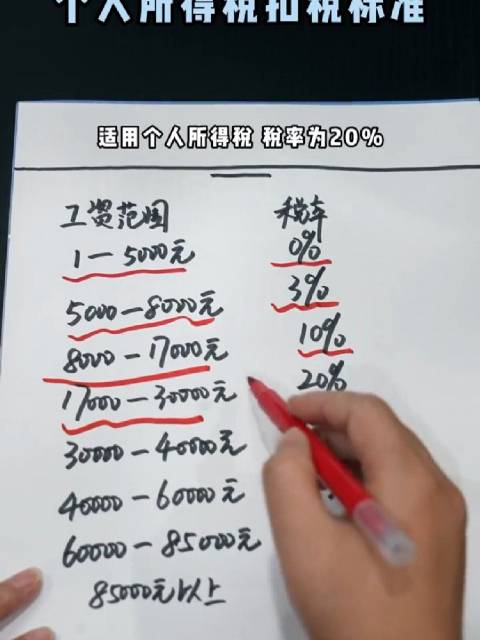 个人所得税扣税标准
适用个人所得税 税率为20%
工资范围 税率
1—5000元 0%
5000—8000元 3%
8000—17000元 10%
17000—30000元 20%
30000—40000元
40000—60000元
60000—85000元
85000元以上